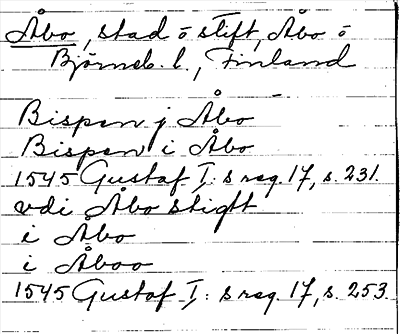 Åbo, stad o stift, Åbo o
Björneb. l., Finland
Bispen j Åbo
Bispen i Åbo
1545 Gustaf I: s reg. 17, s. 231.
vdi Åbo stigtt
i Åbo
i Åboo
1545 Gustaf I: s reg. 17, s. 253.